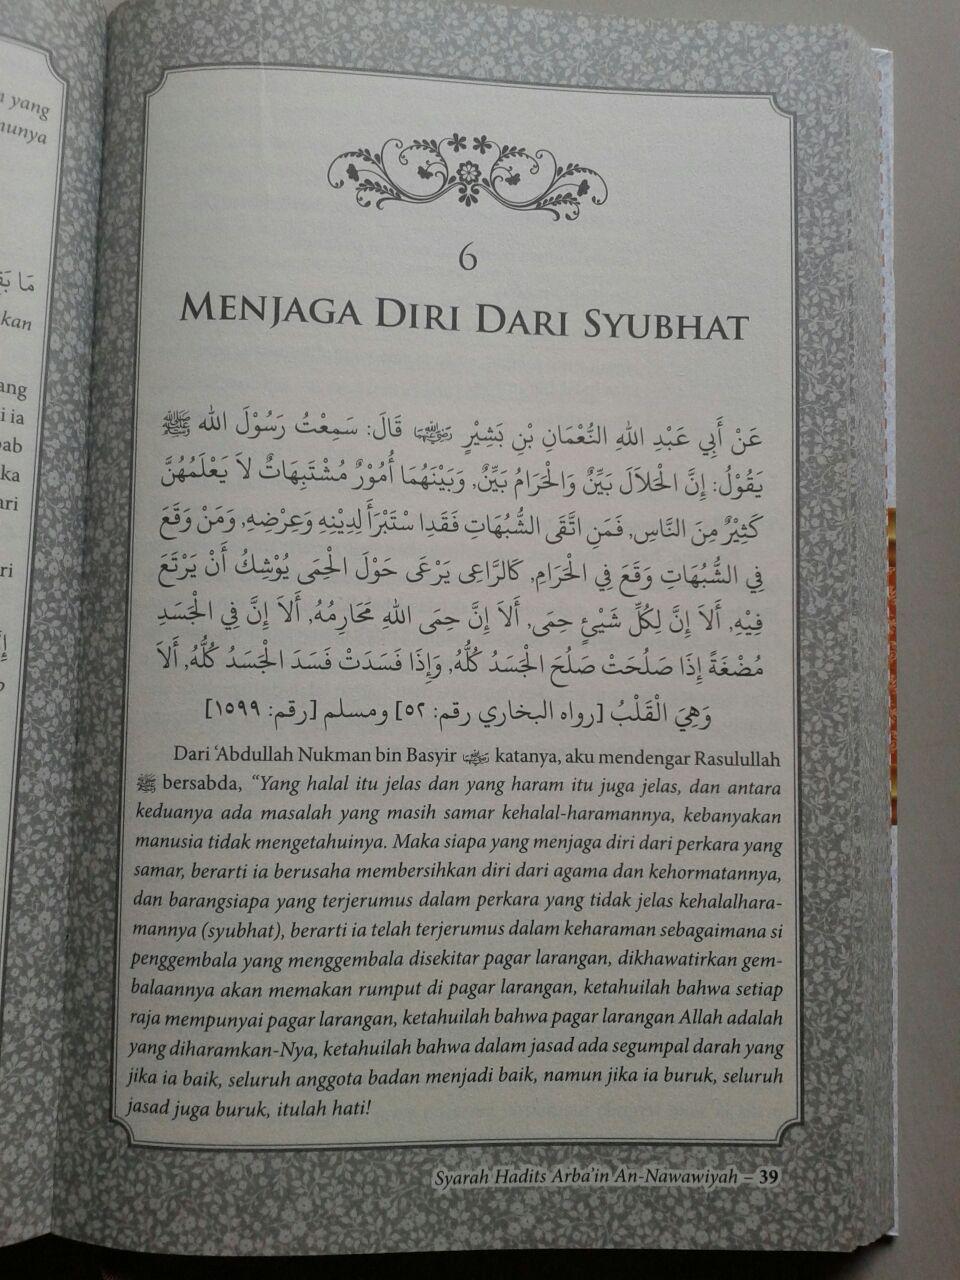 n yang
nunya
kan
ang
i ia
ka
ari
ri
6
MENJAGA DIRI DARI SYUBHAT
عَنْ أَبِي عَبْدِ اللهِ النُّعْمَانِ بْنِ بَشِيْرٍ رضي الله عنهما قَالَ: سَمِعْتُ رَسُوْلَ الله ﷺ
يَقُوْلُ: إِنَّ الْحَلاَلَ بَيِّنٌ وَالْحَرَامُ بَيِّنٌ, وَبَيْنَهُمَا أُمُوْرٌ مُشْتَبِهَاتٌ لاَ يَعْلَمُهُنَّ
كَثِيْرٌ مِنَ النَّاسِ, فَمَنِ اتَّقَى الشُّبُهَاتِ فَقَدِا سْتَبْرَأَ لِدِيْنِهِ وَعِرْضِهِ, وَمَنْ وَقَعَ
فِي الشُّبُهَاتِ وَقَعَ فِي الْحَرَامِ, كَالرَّاعِى يَرْعَى حَوْلَ الْحِمَى يُوْشِكُ أَنْ يَرْتَعَ
فِيْهِ, أَلاَ إِنَّ لِكُلِّ شَيْئٍ حِمَى, أَلاَ إِنَّ حِمَى اللهِ مَحَارِمُهُ, أَلاَ إِنَّ فِي الْجَسَدِ
مُضْغَةً إِذَا صَلُحَتْ صَلُحَ الْجَسَدُ كُلُّهُ, وَإِذَا فَسَدَتْ فَسَدَ الْجَسَدُ كُلُّهُ, أَلاَ
وَهِيَ الْقَلْبُ [رواه البخاري رقم: ٥٢] ومسلم [رقم: ١٥٩٩]
Dari ‘Abdullah Nukman bin Basyir katanya, aku mendengar Rasulullah
ﷺ bersabda, “Yang halal itu jelas dan yang haram itu juga jelas, dan antara
keduanya ada masalah yang masih samar kehalal-haramannya, kebanyakan
manusia tidak mengetahuinya. Maka siapa yang menjaga diri dari perkara yang
samar, berarti ia berusaha membersihkan diri dari agama dan kehormatannya,
dan barangsiapa yang terjerumus dalam perkara yang tidak jelas kehalalhara-
mannya (syubhat), berarti ia telah terjerumus dalam keharaman sebagaimana si
penggembala yang menggembala disekitar pagar larangan, dikhawatirkan gem-
balaannya akan memakan rumput di pagar larangan, ketahuilah bahwa setiap
raja mempunyai pagar larangan, ketahuilah bahwa pagar larangan Allah adalah
yang diharamkan-Nya, ketahuilah bahwa dalam jasad ada segumpal darah yang
jika ia baik, seluruh anggota badan menjadi baik, namun jika ia buruk, seluruh
jasad juga buruk, itulah hati!
Syarah Hadits Arba’in An-Nawawiyah – 39